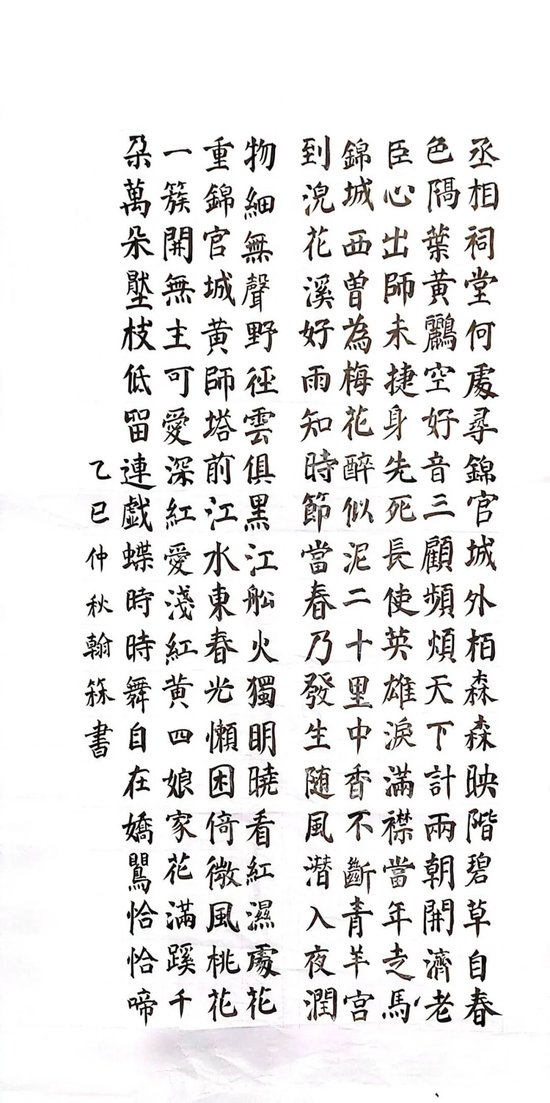 丞相祠堂何處尋錦官城外柏森森映階碧草自春
色隔葉黃鸝空好音三顧頻煩天下計兩朝開濟老
臣心出師未捷身先死長使英雄淚滿襟當年走馬
錦城西曾為梅花醉似泥二十里中香不斷青羊宮
到浣花溪好雨知時節當春乃發生随風潛入夜潤
物細無聲野徑雲俱黑江舩火獨明曉看紅濕處花
重錦官城黃師塔前江水東春光懶困倚微風桃花
一簇開無主可愛深紅愛淺紅黃四娘家花滿蹊千
朵萬朵壓枝低留連戲蝶時時舞自在嬌鶯恰恰啼
乙巳仲秋翰書